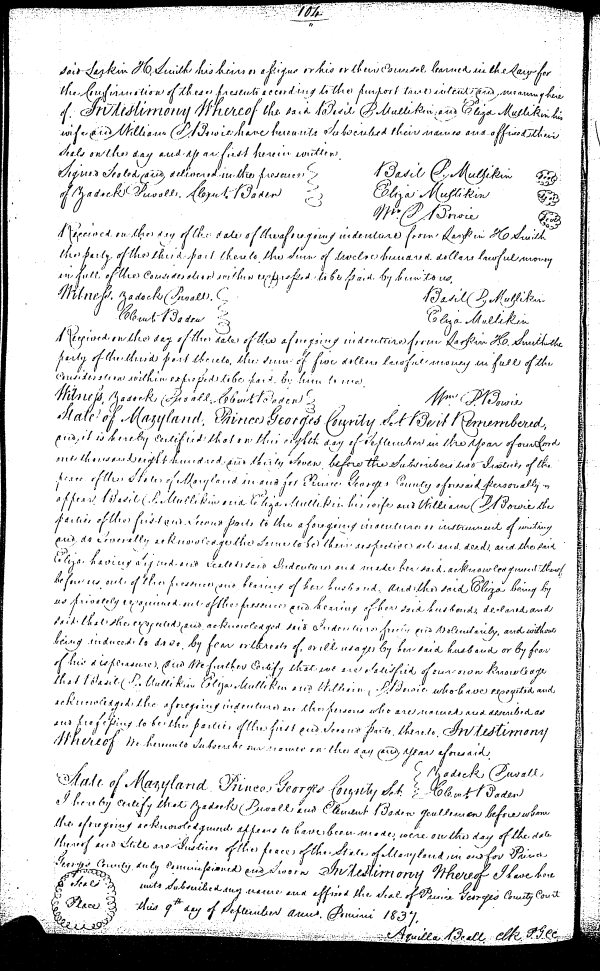 104
said Larkin H. Smith his heirs or assigns or his or their Counsel learned in the Law for
the Confirmation of these presents according to the purport true intent and meaning here
of. In testimony Whereof the said Basil P. Mullikin and Eliza Mullikin his
wife and William P. Bowie have hereunto Subscribed their names and affixed their
Seals on the day and year first herein written.
Signed Sealed and delivered in the presence Basil P. Mullikin Seal
of Zadock Duvall. Clemt. Baden Eliza Mullikin Seal
Wm. P. Bowie Seal
Received on the day of the date of the aforegoing indenture from Larkin H. Smith
the party of the third part thereto, the Sum of twelve hundred dollars lawful money
in full of the Consideration within expressed to be paid by him to us.
Witness. Zadock Duvall. Basil P. Mullikin
Clemt. Baden Eliza Mullikin
Received on the day of the date of the aforegoing indenture from Larkin H. Smith the
party of the third part thereto, the sum of five dollars lawful money in full of the
Consideration within expressed to be paid by him to me.
Witness, Zadock Duvall, Clemt Baden Wm. P. Bowie
State of Maryland, Prince Georges County Sct. Be it Remembered,
and it is hereby Certified that on this eighth day of September in the Year of our Lord
one thousand eight hundred and thirty Seven, before the Subscribers two Justices of the
peace of the State of Maryland in and for Prince Georges County aforesaid personally
appear Basil P. Mullikin and Eliza Mullikin his wife and William P. Bowie the
parties of the first and Second parts to the aforegoing indenture or instrument of writing
and do Severally acknowledge the Same to be their respective act and deed, and the said
Eliza having signed and Sealed said Indenture and made her said acknowledgment thereof
before us out of the presence and hearing of her husband. And the said Eliza being by
us privately examined out of the presence and hearing of her said husband declared and
said that she executed and acknowledged said Indenture freely and Voluntarily, and without
being induced to do so, by fear or threats of, or ill usage by her said husband or by fear
of his displeasure, and We further Certify that we are satisfied of our own knowledge
that Basil P. Mullikin Eliza Mullikin and William P. Bowie who have executed and
acknowledged the aforegoing indenture are the persons who are named and described as
and professing to be the parties of the first and Second parts thereto. In testimony
Whereof We hereunto Subscribe our names on the day and year aforesaid
Zadock Duvall
State of Maryland Prince Georges County Sct. Clemt. Baden
I hereby certify that Zadock Duvall and Clement Baden gentlemen before whom
the aforegoing acknowledgment appears to have been made, were on the day of the date
thereof and Still are Justices of the peace of the State of Maryland in and for Prince
Georges County, duly Commissioned and Sworn. In testimony Whereof I have here
unto Subscribed my name and affixed the Seal of Prince George's County Court
this 9th day of September anno Domini 1837.
Seals Place
Aquilla Beall clk P.G.CC